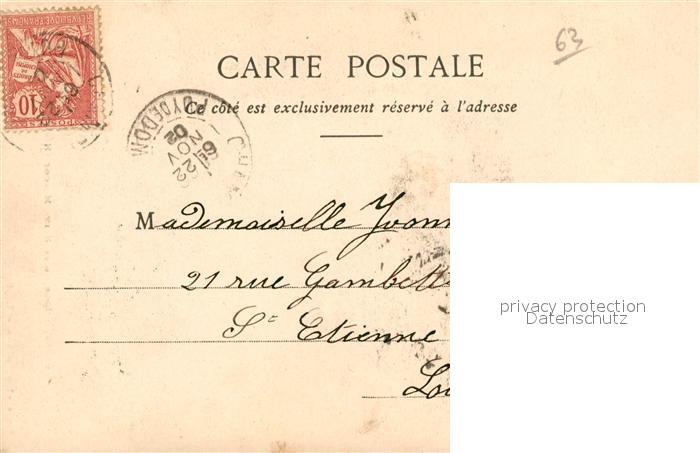 63
CARTE POSTALE
Ce côté est exclusivement réservé à l'adresse
REPUBLIQUE FRANÇAISE
10
POSTES
PUY DE DOM
22
NOV
02
Mademoiselle Yvonn
21 rue Gambett
St Etienne
Loi
privacy protection
Datenschutz